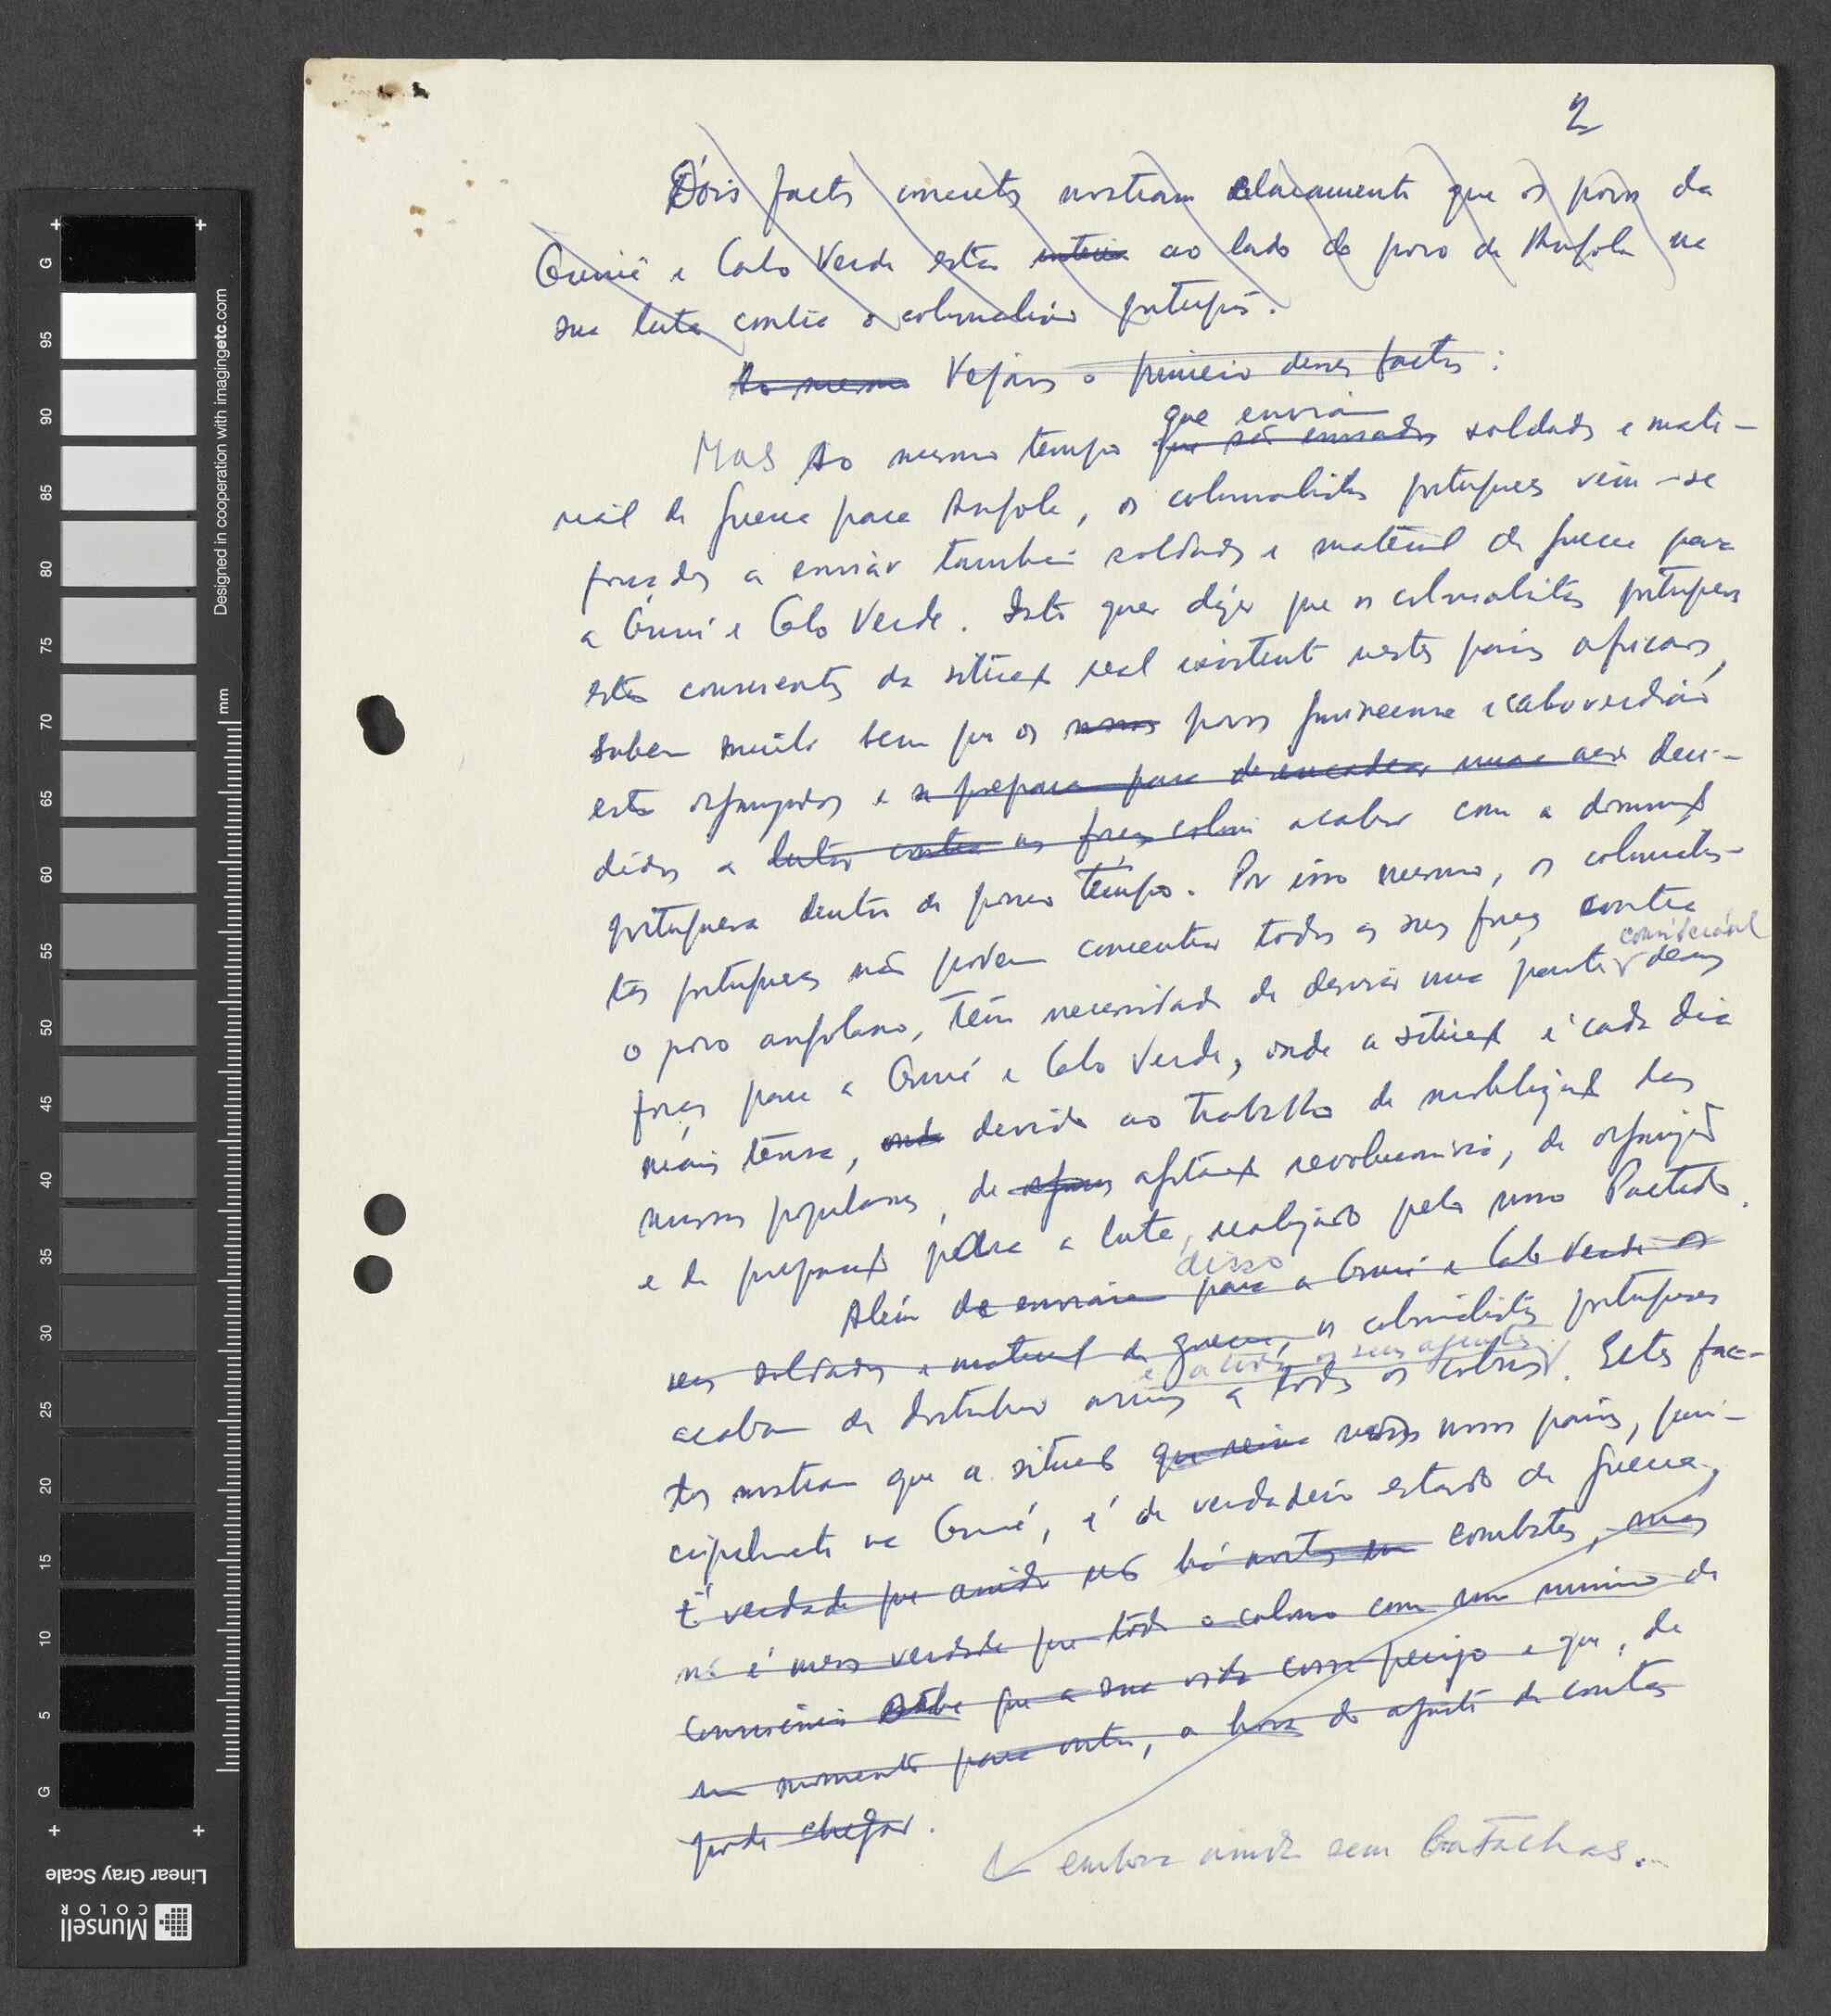 2
Dois factos concretos mostram claramente que os povos da
Guiné e Cabo Verde estão ao lado do povo de Angola na
sua luta contra o colonialismo português.
Ao mesmo Vejamos o primeiro desses factos:
que enviam
Mas Ao mesmo tempo que são enviados soldados e mate-
rial de guerra para Angola, os colonialistas portugueses vêm-se
forçados a enviar também soldados e material de guerra para
a Guiné e Cabo Verde. Isto quer dizer que os colonialistas portugueses
estão conscientes da situação real existente nestes países africanos,
sabem muito bem que os nossos povos guineense e caboverdiano
estão organizados e se preparam para desencadear uma acção deci-
didos a lutar contra as forças coloni acabar com a dominação
portuguesa dentro de pouco tempo. Por isso mesmo, os colonialis-
tas portugueses não podem concentrar todas as suas forças contra
considerável
o povo angolano, têm necessidade de desviar uma parte dessas
forças para a Guiné e Cabo Verde, onde a situação é cada dia
mais tensa, onde devido ao trabalho de mobilização das
massas populares, de agitação revolucionária, de organização
e de preparação para a luta, realizado pelo nosso Partido.
disso
Além de enviarem para a Guiné e Cabo Verde os
seus soldados e material de guerra, os colonialistas portugueses
e a todos os seus agentes
acabam de distribuir armas a todos os colonos. Estes fac-
tos mostram que a situação que reina nos nossos países, prin-
cipalmente na Guiné, é de verdadeiro estado de guerra,
É verdade que ainda não há mortos em combates, mas
não é menos verdade que todo o colono com um mínimo de
consciência sabe que a sua vida corre perigo e que, de
um momento para outro, a hora do ajuste de contas
pode chegar.
embora ainda sem batalhas...
Linear Gray Scale
Munsell
COLOR
Designed in cooperation with imagingetc.com
mm
G
95
90
85
80
75
70
65
60
55
50
45
40
35
30
25
20
15
10
5
G